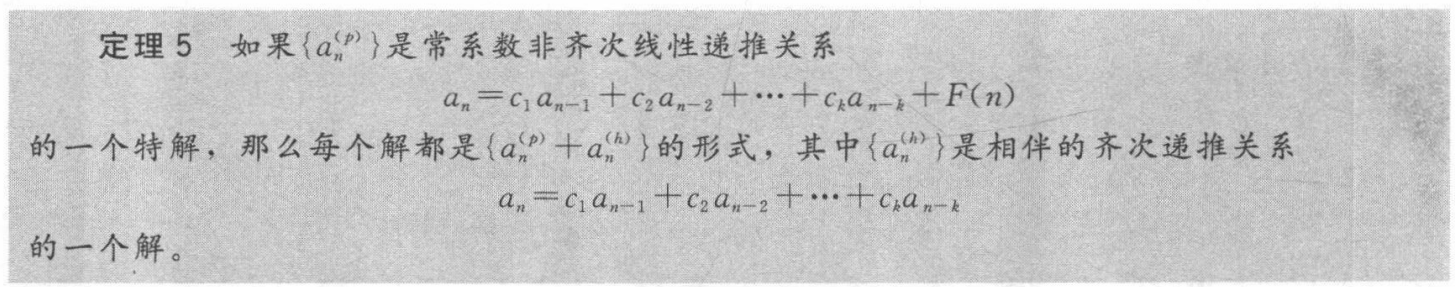 定理 5 如果{aₙ⁽ᵖ⁾}是常系数非齐次线性递推关系
aₙ=c₁aₙ₋₁+c₂aₙ₋₂+⋯+cₖaₙ₋ₖ+F(n)
的一个特解，那么每个解都是{aₙ⁽ᵖ⁾+aₙ⁽ʰ⁾}的形式，其中{aₙ⁽ʰ⁾}是相伴的齐次递推关系
aₙ=c₁aₙ₋₁+c₂aₙ₋₂+⋯+cₖaₙ₋ₖ
的一个解。